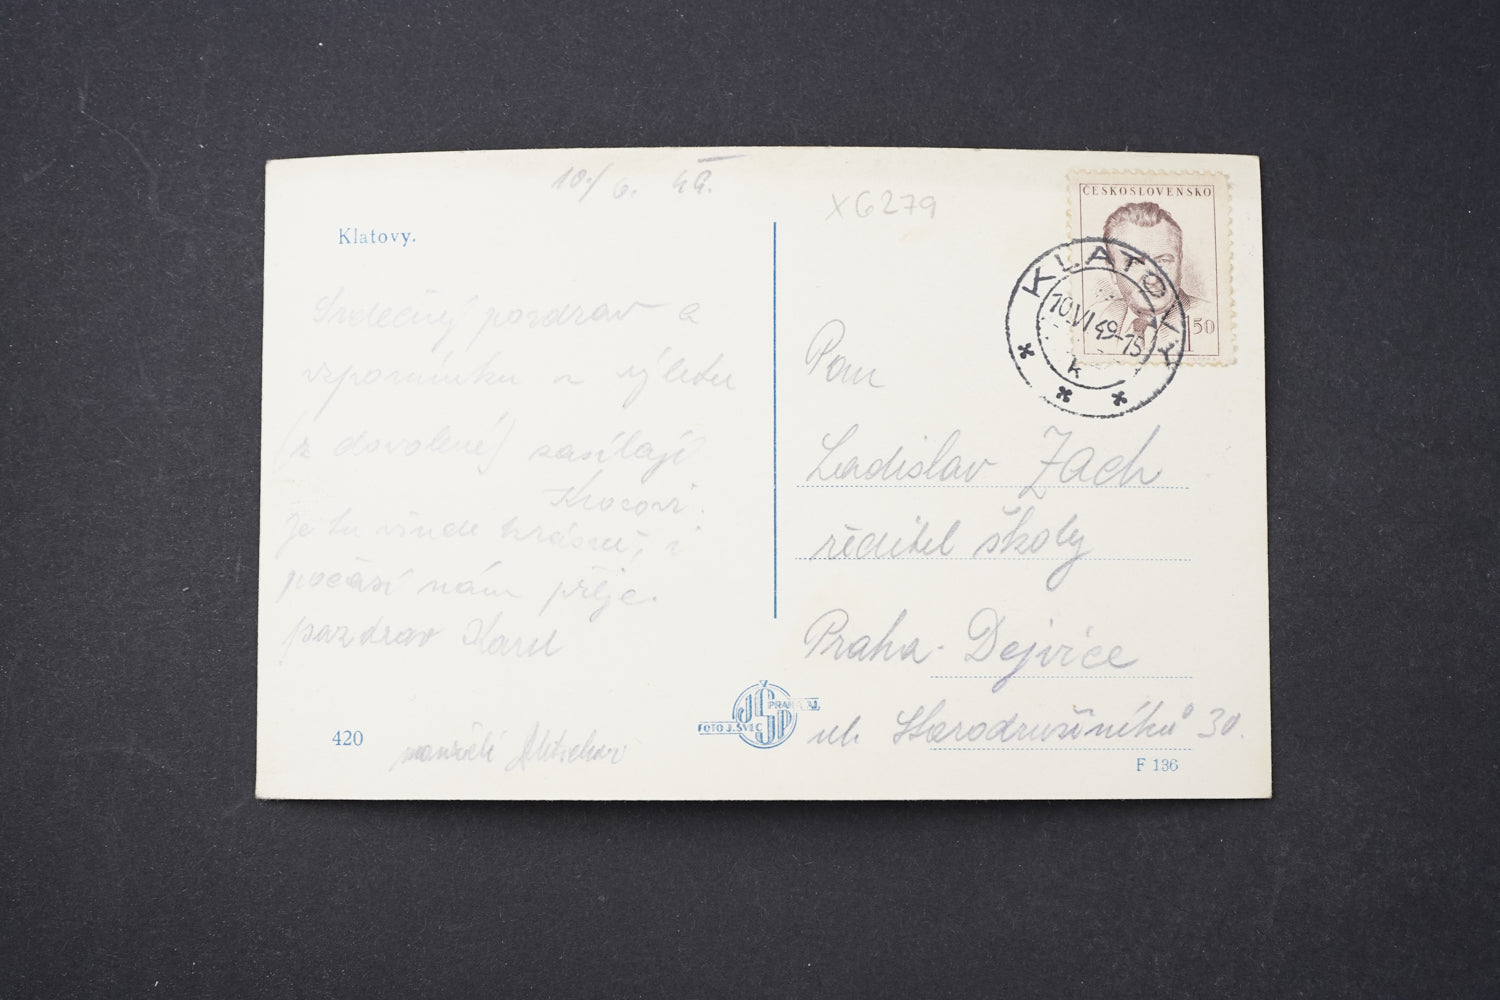 10./6. 49.
X6279
ČESKOSLOVENSKO
1 50
KLATOVY
10.VI 49-15
k
Klatovy.
Srdečný pozdrav a
vzpomínku z výletu
(z dovolené) zasílají
Krocovi.
Je tu všude krásně, i
počasí nám přeje.
pozdrav Karel
manželé
420
Pan
Ladislav Zach
ředitel školy
Praha - Dejvice
ul. Starodružiníků 30.
FOTO J. ŠVEC
PRAHA XI.
F 136